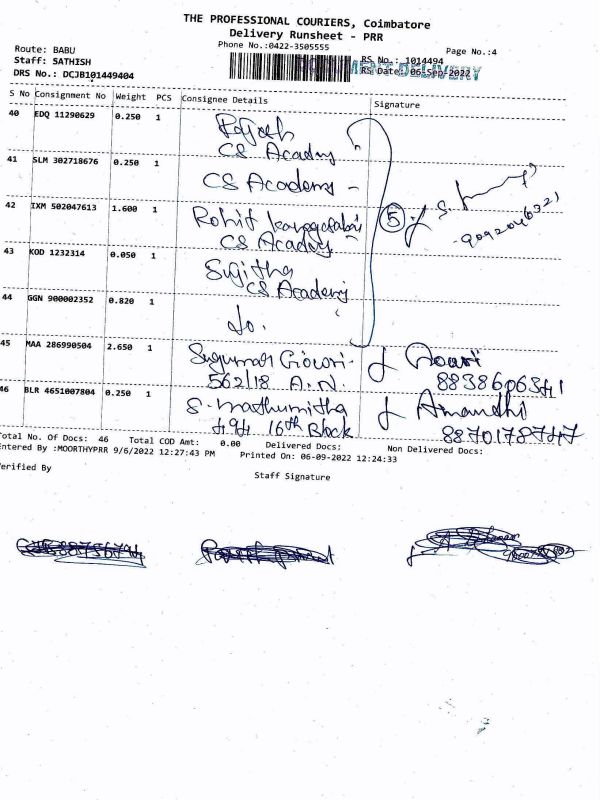 THE PROFESSIONAL COURIERS, Coimbatore
Delivery Runsheet - PRR
Phone No.:0422-3505555
Page No.:4
Route: BABU
Staff: SATHISH
DRS No.: DCJB101449404
RS No.: 1014494
RS Date: 06-Sep-2022
DELIVERY
S No Consignment No Weight PCS Consignee Details Signature
40 EDQ 11290629 0.250 1
CS Academy
41 SLM 302718676 0.250 1 CS Academy -
42 IXM 502047613 1.600 1 Rohit
CS Academy
5
S.
9092046321
43 KOD 1232314 0.050 1 Sujitha
CS Academy
44 GGN 900002352 0.820 1 do.
45 MAA 286990504 2.650 1 Sugumar Gowri. Gowri
562/18 A.N. 8838606341
46 BLR 4651007804 0.250 1 S. Mathumitha Amandhi
H.H 16th Block 8870178747
Total No. Of Docs: 46 Total COD Amt: 0.00 Delivered Docs: Non Delivered Docs:
Entered By :MOORTHYPRR 9/6/2022 12:27:43 PM Printed On: 06-09-2022 12:24:33
Verified By
Staff Signature